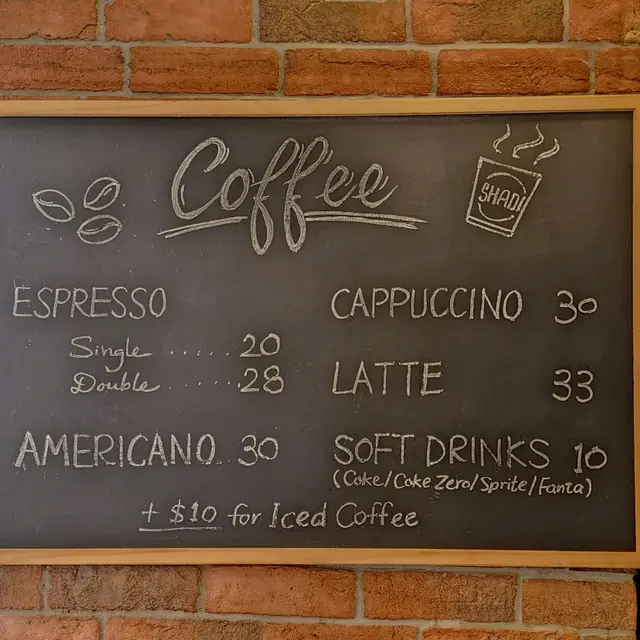 Coffee
SHADI
ESPRESSO
Single ...... 20
Double ....... 28
AMERICANO 30
CAPPUCCINO 30
LATTE 33
SOFT DRINKS 10
(Coke/Coke Zero/Sprite/Fanta)
+ $10 for Iced Coffee